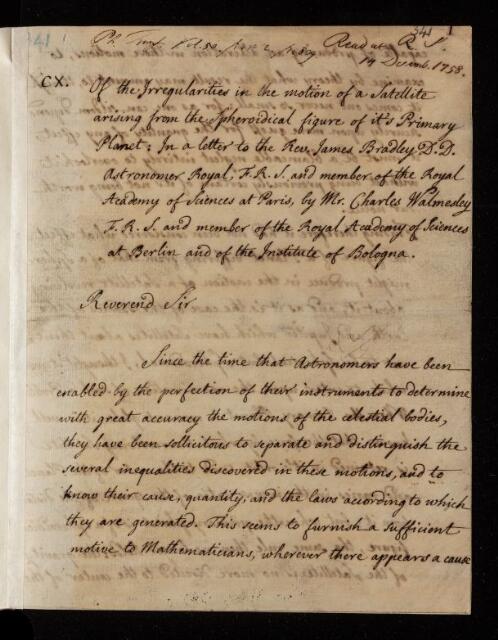 341
341 1
Ph. Trans. Vol. 50. part 2. p. 809
Read at R. S.
14 Decemb. 1758.
CX. Of the Irregularities in the motion of a Satellite
arising from the Spheroidical figure of it's Primary
Planet; In a letter to the Rev. James Bradley D.D.
Astronomer Royal, F.R.S. and member of the Royal
Academy of Sciences at Paris, by Mr. Charles Walmesley
F.R.S. and member of the Royal Academy of Sciences
at Berlin and of the Institute of Bologna.
Reverend Sir
Since the time that Astronomers have been
enabled by the perfection of their instruments to determine
with great accuracy the motions of the celestial bodies,
they have been sollicitous to separate and distinguish the
several inequalities discovered in these motions, and to
know their cause, quantity, and the laws according to which
they are generated. This seems to furnish a sufficient
motive to Mathematicians, wherever there appears a cause